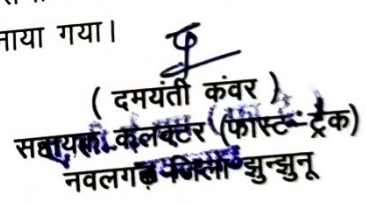 नाया गया।
( दमयंती कंवर )
सहायक कलक्टर (फास्ट-ट्रैक)
नवलगढ़ जिला झुन्झुनू